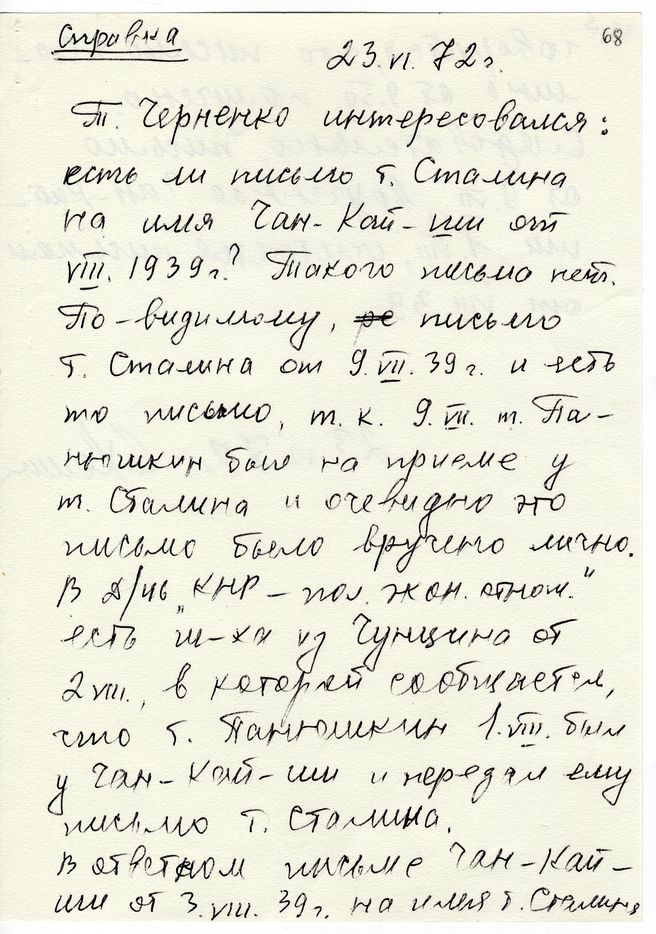 Справка
68
23.VI.72 г.
Т. Черненко интересовался:
есть ли письмо т. Сталина
на имя Чан-Кай-ши от
VIII. 1939 г.? Такого письма нет.
По-видимому, письмо
т. Сталина от 9.VII.39 г. и есть
то письмо, т. к. 9.VII. т. Па-
нюшкин был на приеме у
т. Сталина и очевидно это
письмо было вручено лично.
В д/46 „КНР - пол. экон. отнош."
есть ш-ка из Чунцина от
2 VIII., в которой сообщается,
что т. Панюшкин 1.VIII. был
у Чан-Кай-ши и передал ему
письмо т. Сталина.
В ответном письме Чан-Кай-
ши от 3.VIII. 39 г. на имя т. Сталина